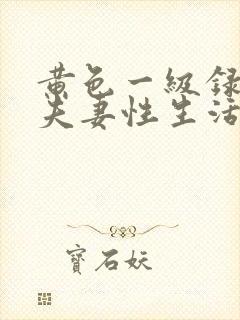 黄色一級録
夫妻性生活
寶石妖